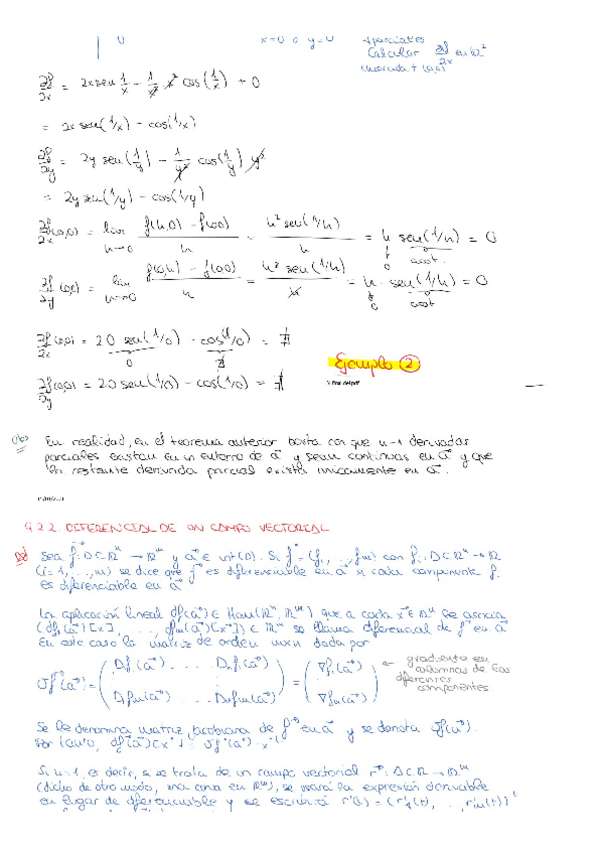 0 x=0 o y=0 parciales
Calcular ∂f/∂x en ℝ²
∂f/∂x = 2x sen 1/x - 1/x² x² cos(1/x) + 0
= 2x sen(1/x) - cos(1/x)
∂f/∂y = 2y sen(1/y) - 1/y² cos(1/y) y²
= 2y sen(1/y) - cos(1/y)
∂f/∂x(0,0) = lim h→0 f(h,0) - f(0,0) / h = h² sen(1/h) / h = h sen(1/h) = 0
0 acot.
∂f/∂y (0,0) = lim h→0 f(0,h) - f(0,0) / h = h² sen(1/h) / h = h · sen(1/h) = 0
0 acot
∂f/∂x(0,0) = 2·0 sen(1/0) - cos(1/0) = ∄
0 ∄
Ejemplo 2
∂f/∂y(0,0) = 2·0 sen(1/0) - cos(1/0) = ∄
En realidad, en el teorema anterior basta con que n-1 derivadas
parciales existan en un entorno de a⃗ y sean continuas en a⃗ y que
la restante derivada parcial exista únicamente en a⃗.
9.2.2. DIFERENCIAL DE UN CAMPO VECTORIAL
Sea f⃗: D⊂ℝⁿ → ℝᵐ y a⃗ ∈ int(D). Si f⃗ = (f₁, ..., fm) con fᵢ: D⊂ℝⁿ → ℝ
(i=1, ..., m) se dice que f⃗ es diferenciable en a⃗ si cada componente fᵢ
es diferenciable en a⃗
La aplicación lineal df(a⃗) ∈ Hom(ℝⁿ, ℝᵐ) que a cada x⃗ ∈ ℝⁿ le asocia
(df₁(a⃗)[x⃗], ..., dfm(a⃗)[x⃗]) ∈ ℝᵐ se llama diferencial de f⃗ en a⃗
En este caso la matriz de orden mxn dada por
Jf⃗(a⃗) = (D₁f₁(a⃗) ... Dnf₁(a⃗) = (∇f₁(a⃗) ← gradiente en
columnas de las
diferentes
D₁fm(a⃗) ... Dnfm(a⃗)) ∇fm(a⃗)) componentes
Se le denomina matriz jacobiana de f⃗ en a⃗ y se denota Jf(a⃗).
Por tanto, df(a⃗)[x⃗] = Jf(a⃗) · x⃗
Si n=1, es decir, si se trata de un campo vectorial r⃗: D⊂ℝ → ℝᵐ
(dicho de otro modo, una curva en ℝᵐ), se usará la expresión derivable
en lugar de diferenciable y se escribirá r'(t) = (r₁'(t), ..., rm'(t))